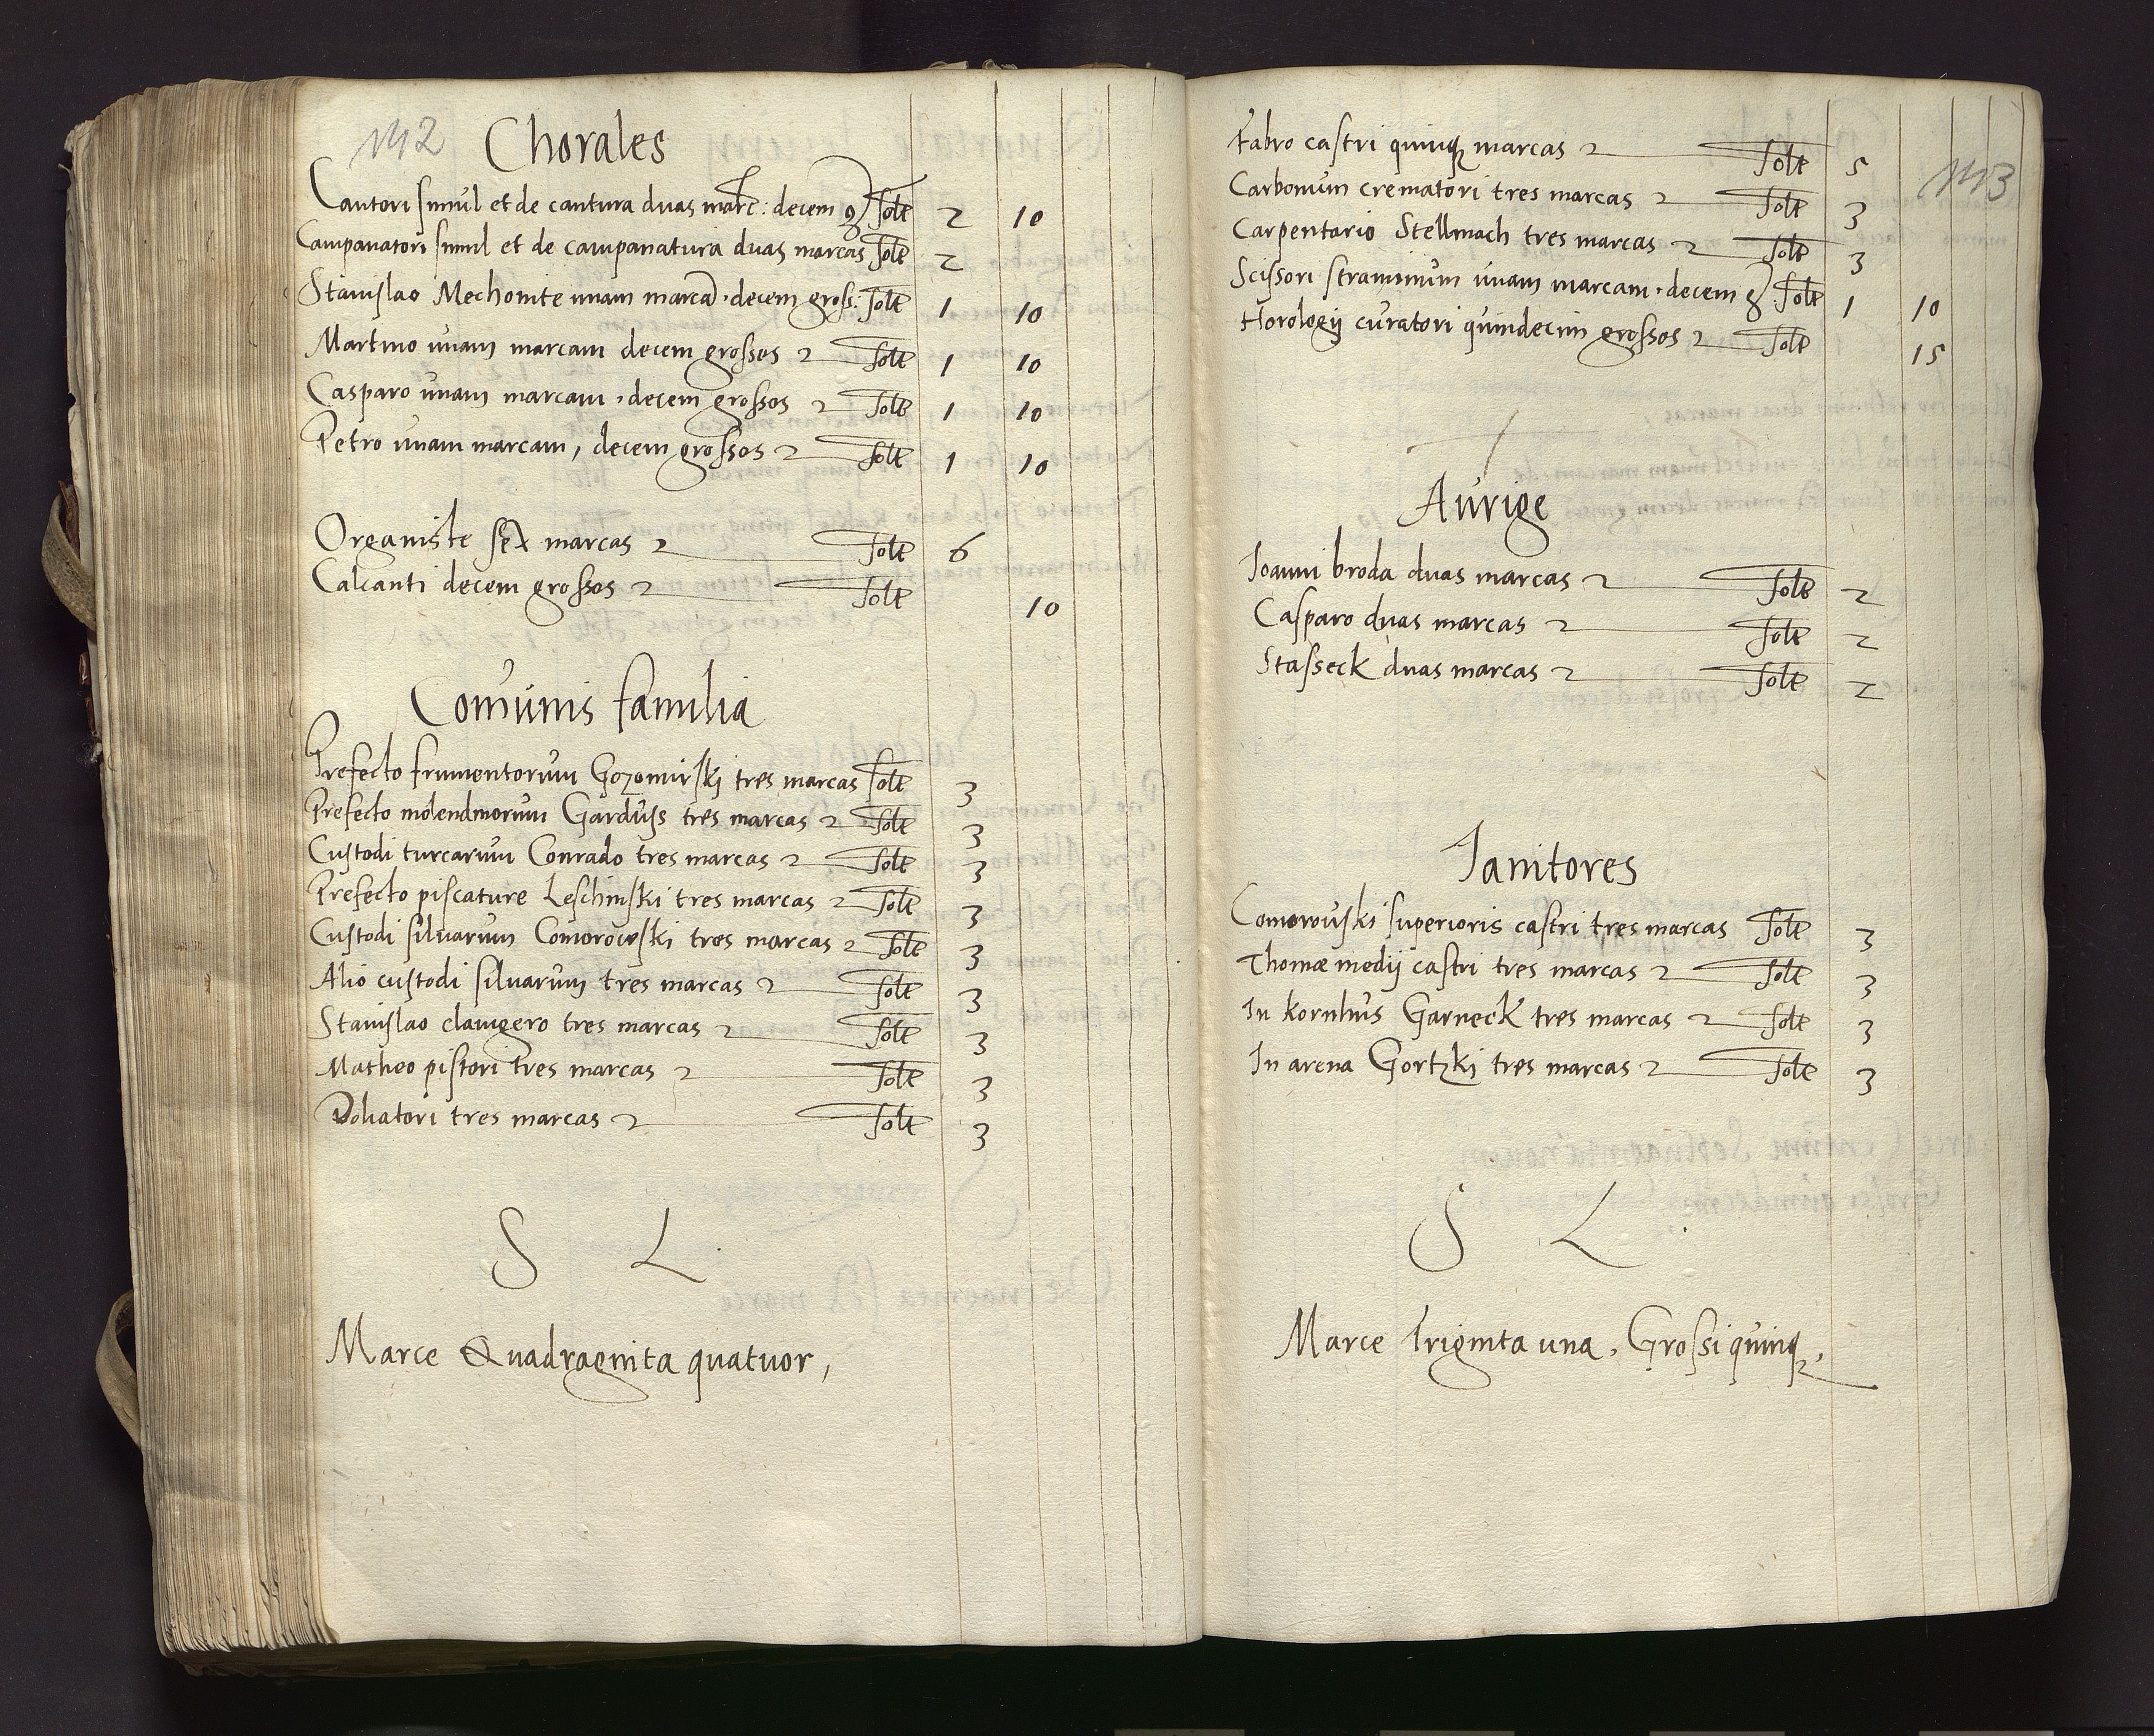 142
Chorales
Cantori simul et de cantura duas marc: decem g solt 2 10
Campanatori simul et de campanatura duas marcas solt 2
Stanislao Mechonite unam marcā. decem gross: solt 1 10
Martino unam marcam decem grossos solt 1 10
Casparo unam marcam, decem grossos solt 1 10
Petro unam marcam, decem grossos solt 1 10
Organiste sex marcas solt 6
Calcanti decem grossos solt 10
Com̄unis familia
Prefecto frumentorum Gozomirskj tres marcas solt 3
Prefecto molendinorum Garduss tres marcas solt 3
Custodi turcarum Conrado tres marcas solt 3
Prefecto piscature Leschinski tres marcas solt 3
Custodi siluarum Comorowski tres marcas solt 3
Alio custodi siluarum tres marcas solt 3
Stanislao clauigero tres marcas solt 3
Matheo pistori tres marcas solt 3
Doliatori tres marcas solt 3
S L
Marce Quadraginta quatuor,
143
Fabro castri quinq marcas solt 5
Carbonum crematori tres marcas solt 3
Carpentario Stellmach tres marcas solt 3
Scissori straminum unam marcam. decem g solt 1 10
Horologij curatori quindecim grossos solt 15
Aurige
Ioanni broda duas marcas solt 2
Casparo duas marcas solt 2
Stasseck duas marcas solt 2
Ianitores
Comorovski superioris castri tres marcas solt 3
Thomæ medij castri tres marcas solt 3
In kornhus Garneck tres marcas solt 3
In arena Gortzkj tres marcas solt 3
S L
Marce Triginta una, Grossi quinq,